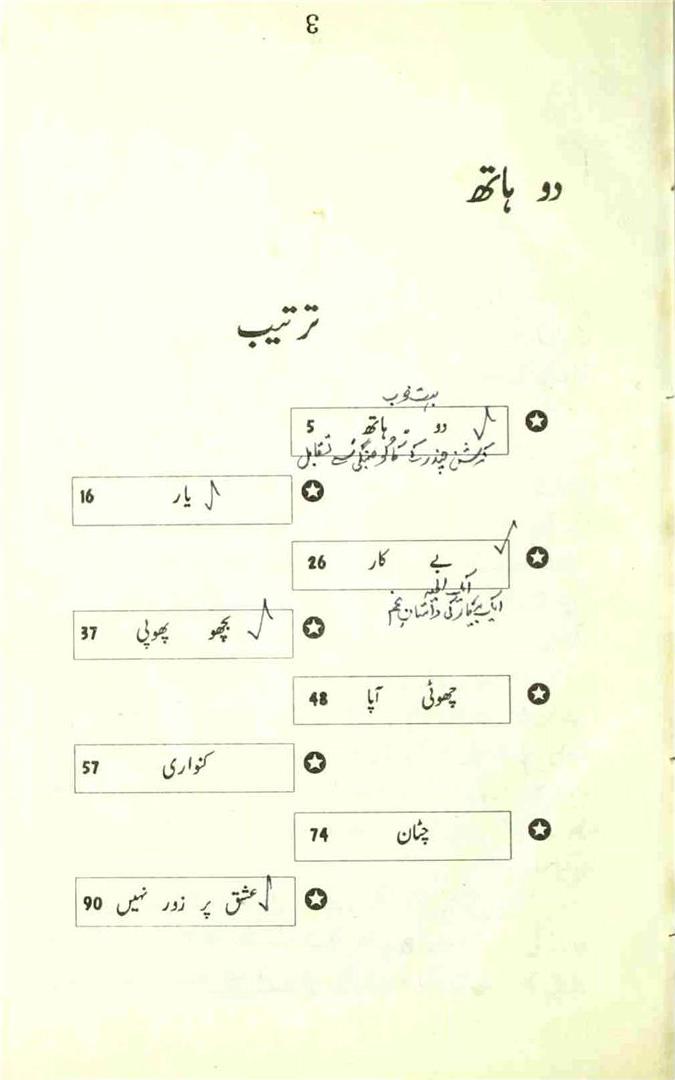 3
دو ہاتھ
ترتیب
بہت خوب
دو ہاتھ 5
کرشن چندر کے سے تقابل
یار 16
بے کار 26
ایک المیہ
ایک بیکار کی داستانِ غم
بچھو پھوپی 37
چھوٹی آپا 48
کنواری 57
چٹان 74
عشق پر زور نہیں 90